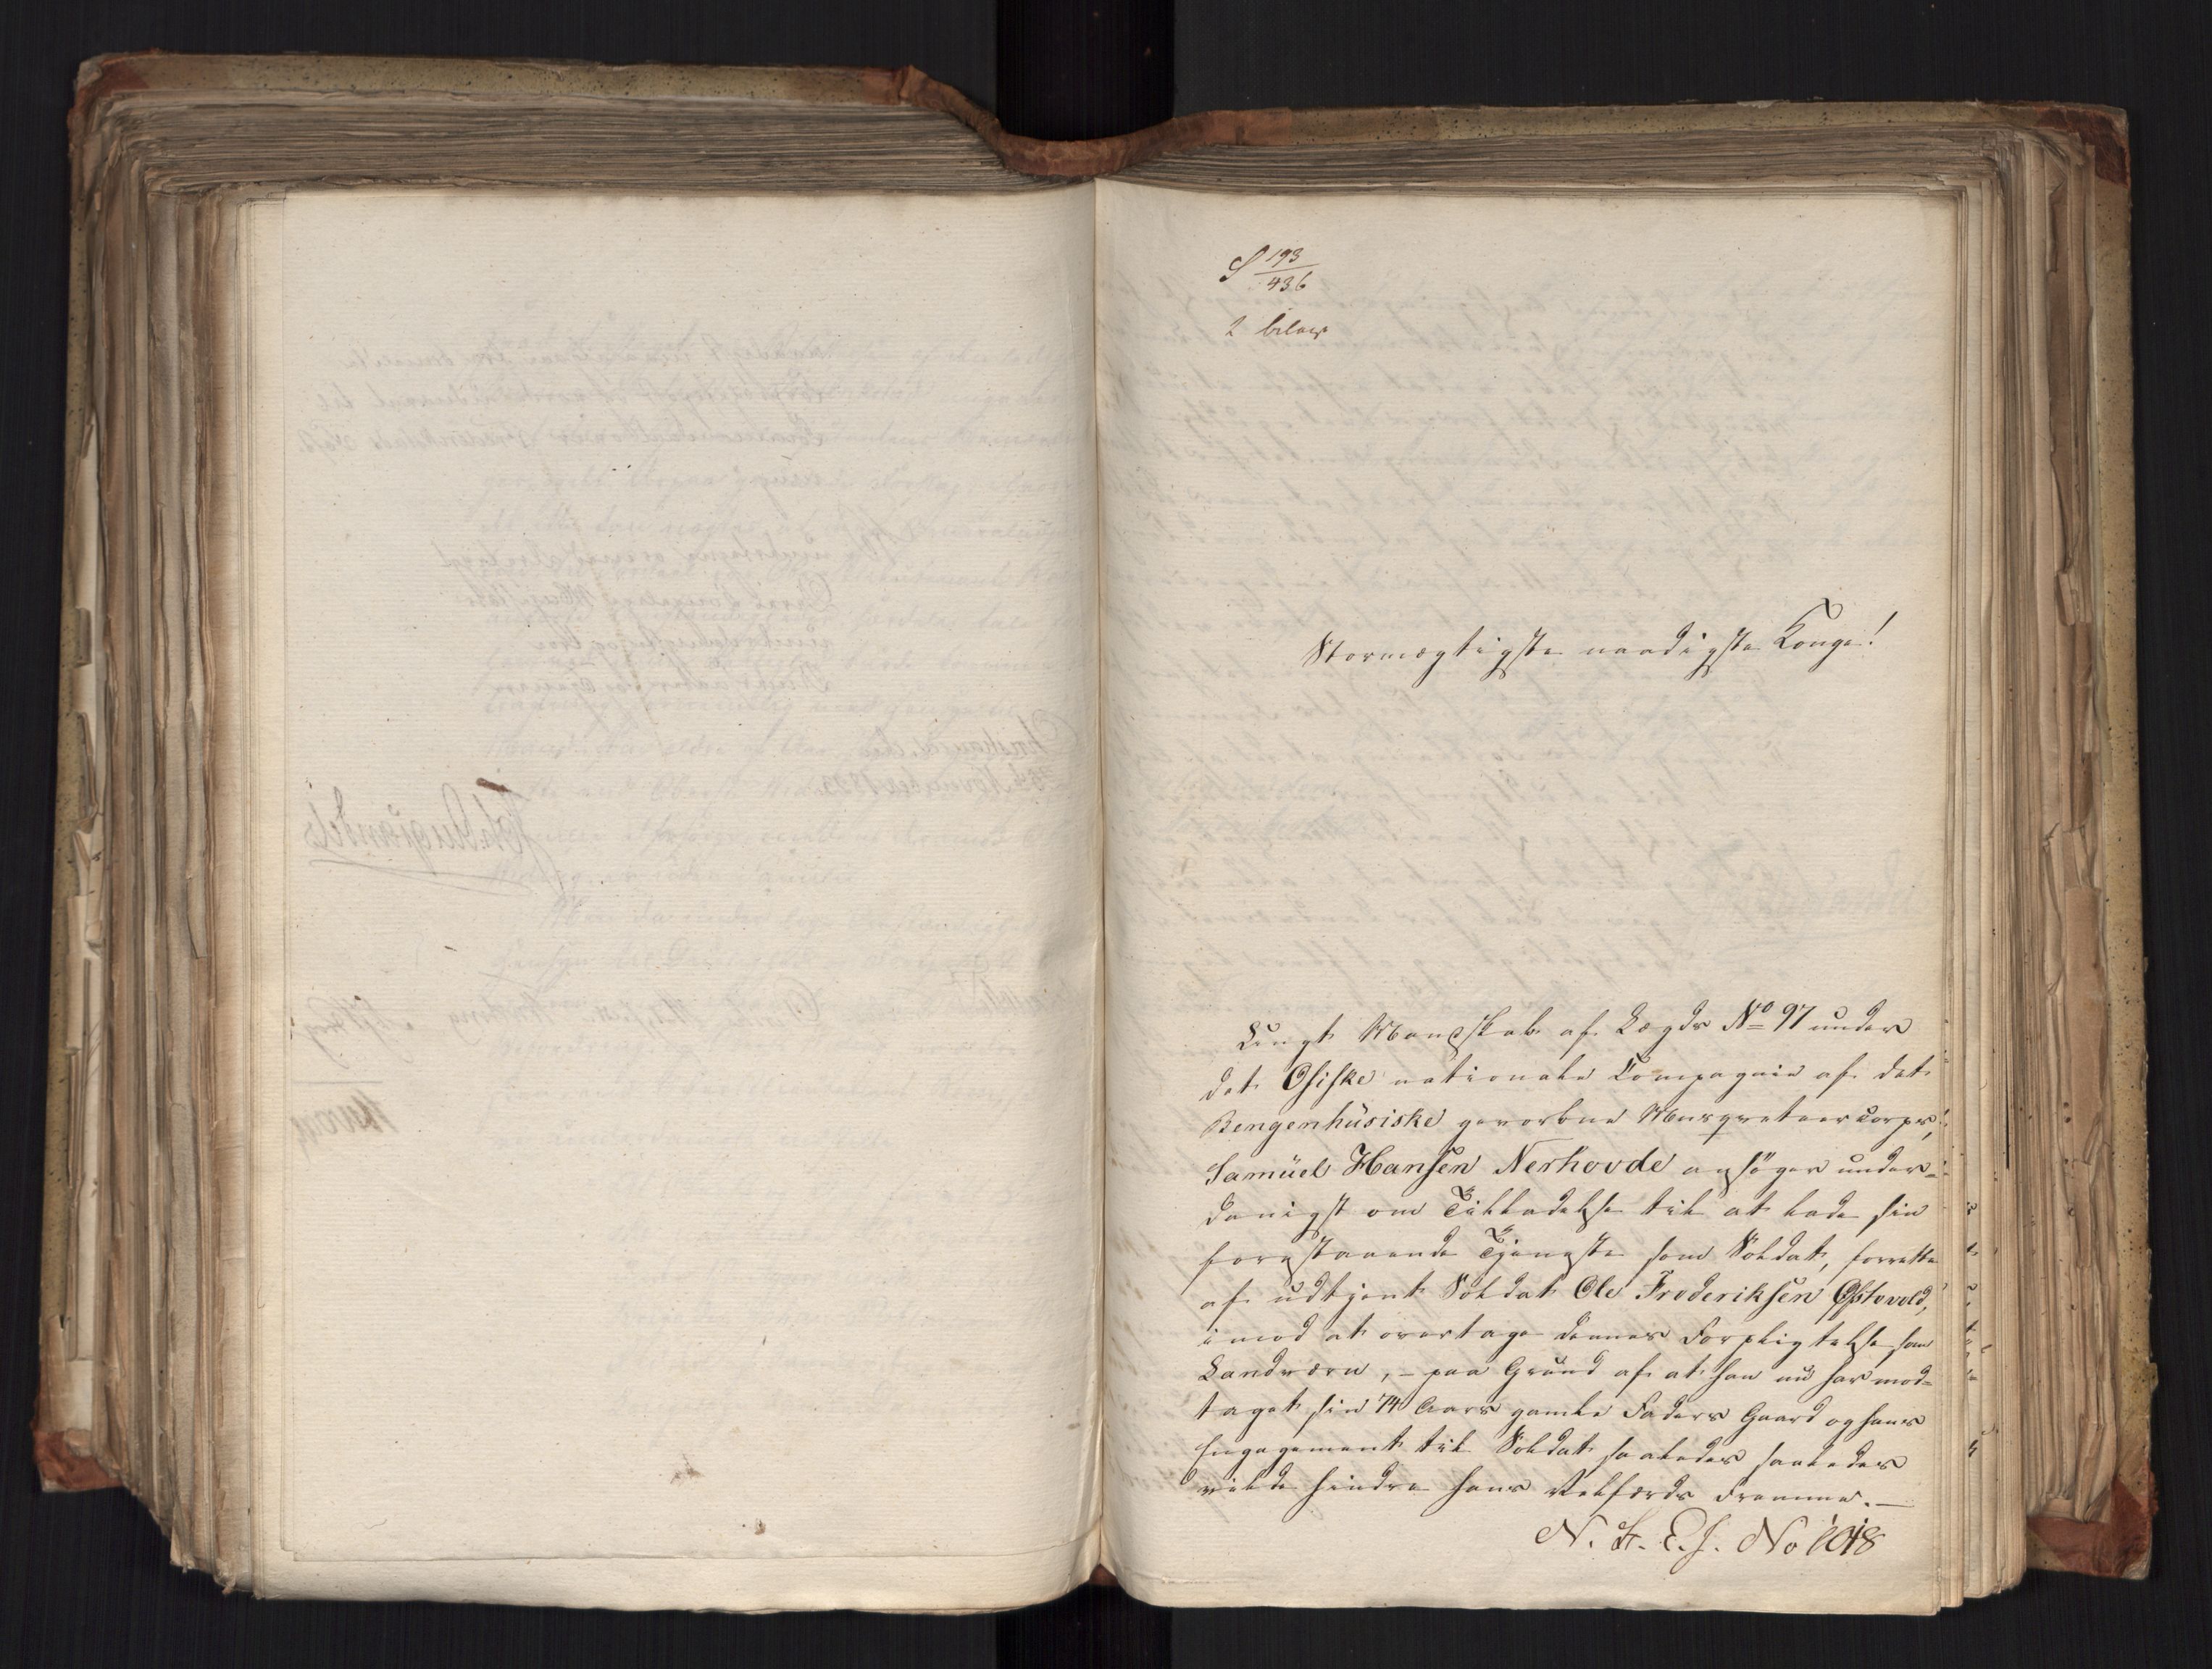 S 193/436
2 bilag
Stormægtigste naadigste Konge!
Ungt Mandskab af Lægds No 97 under
det Osiske nationale Compagnie af det
Bergenhüsiske gevorbne Musqveteer Corps,
Samüel Hansen Nerhovde ansöger under-
danigst om Tilladelse til at lade sin
forestaaende Tjeneste som Soldat, forrette
af udtjent Soldat Ole Frederiksen Østevold,
imod at overtage dennes Forpligtelse som
Landværn, - paa Grund af at han nu har mod=
taget sin 74 Aars gamle Faders Gaard og hans
Engagement til Soldat saaledes saaledes
vilde hindre hans Velfærds Fremme. —
N. Fr. E. J. No 1018